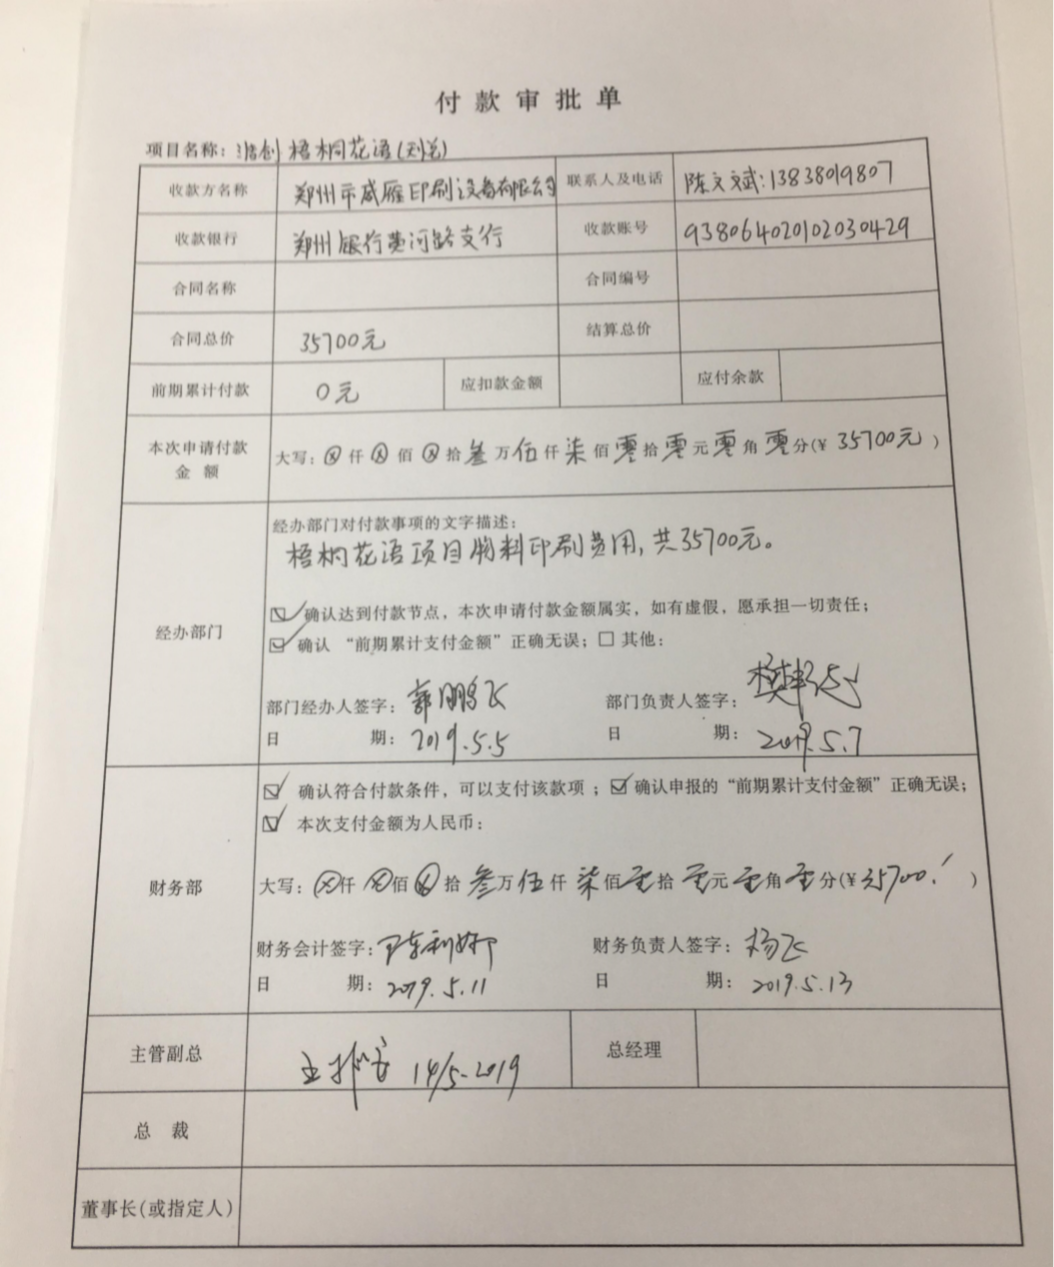 付款审批单
项目名称：浩创 梧桐花语(刘总)
收款方名称 郑州市威雁印刷设备有限公司 联系人及电话 陈文斌:13838019807
收款银行 郑州银行黄河路支行 收款账号 93806402010203​0429
合同名称 合同编号
合同总价 35700元 结算总价
前期累计付款 0元 应扣款金额 应付余款
本次申请付款
金 额
大写：⊗仟⊗佰⊗拾叁万伍仟柒佰零拾零元零角零分(￥35700元)
经办部门
经办部门对付款事项的文字描述：
梧桐花语项目物料印刷费用,共35700元。
☑确认达到付款节点，本次申请付款金额属实，如有虚假，愿承担一切责任；
☑确认“前期累计支付金额”正确无误；□其他：
部门经办人签字：郭鹏飞 部门负责人签字：
日 期：2019.5.5 日 期：2019.5.7
财务部
☑ 确认符合付款条件，可以支付该款项；☑确认申报的“前期累计支付金额”正确无误；
☑ 本次支付金额为人民币：
大写：⊗仟⊗佰⊗拾叁万伍仟柒佰零拾零元零角零分(￥35700.)
财务会计签字： 财务负责人签字：杨飞
日 期：2019.5.11 日 期：2019.5.13
主管副总 14/5-2019 总经理
总 裁
董事长(或指定人)